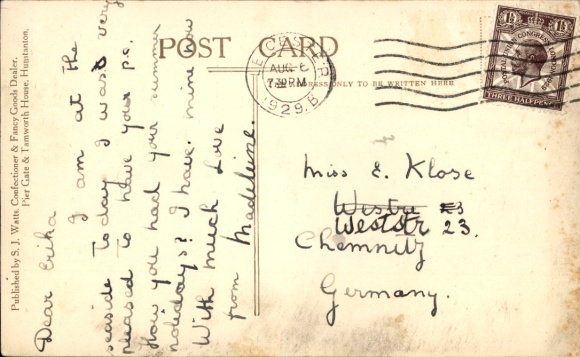 Published by S. J. Watts, Confectioner & Fancy Goods Dealer,
Pier Gate & Tamworth House, Hunstanton.
POST CARD
THE ADDRESS ONLY TO BE WRITTEN HERE
Dear Erika
I am at the
seaside today I was very
pleased to have your p.c.
How you had your summer
holidays? I have mine now
With much Love
from Madeleine.
LEICESTER
AUG 6
7.30PM
1929.B
1½ 1½
POSTAL UNION CONGRESS LONDON 1929
THREE HALFPENCE
Miss E. Klose
Weststr 23.
Chemnitz
Germany.